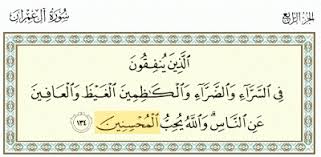 سُورَةُ آلِ عِمْرَانَ
الجُزءُ الرَّابِعُ
الَّذِينَ يُنفِقُونَ
فِي السَّرَّاءِ وَالضَّرَّاءِ وَالْكَاظِمِينَ الْغَيْظَ وَالْعَافِينَ
عَنِ النَّاسِ وَاللَّهُ يُحِبُّ الْمُحْسِنِينَ ١٣٤